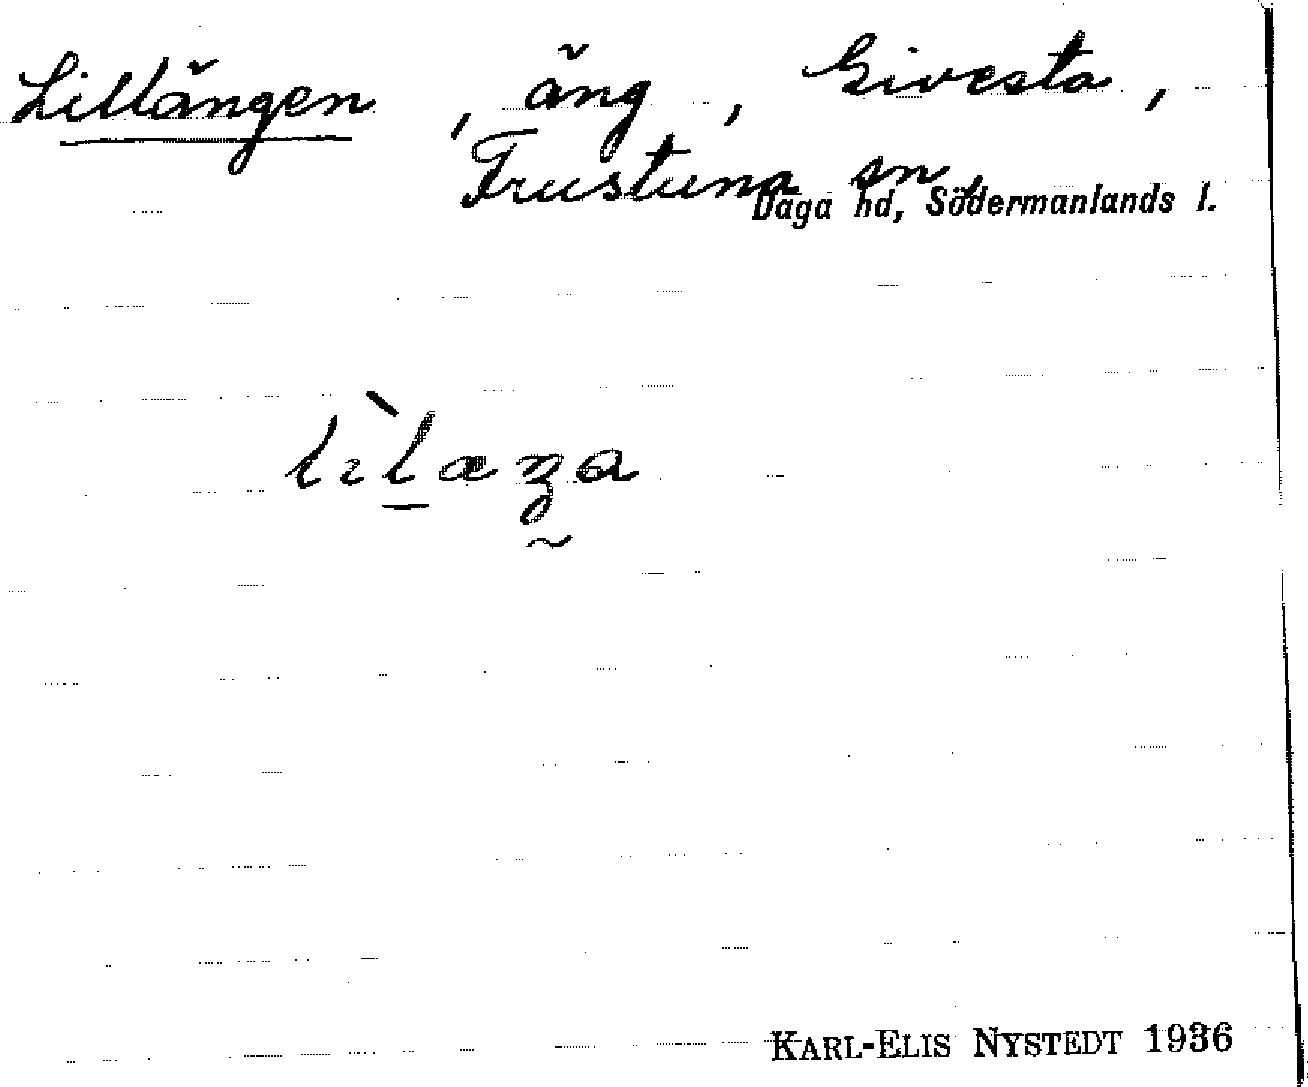 Lillängen, äng, Sivesta,
Frustuna sn,
Daga hd, Södermanlands l.
KARL-ELIS NYSTEDT 1936